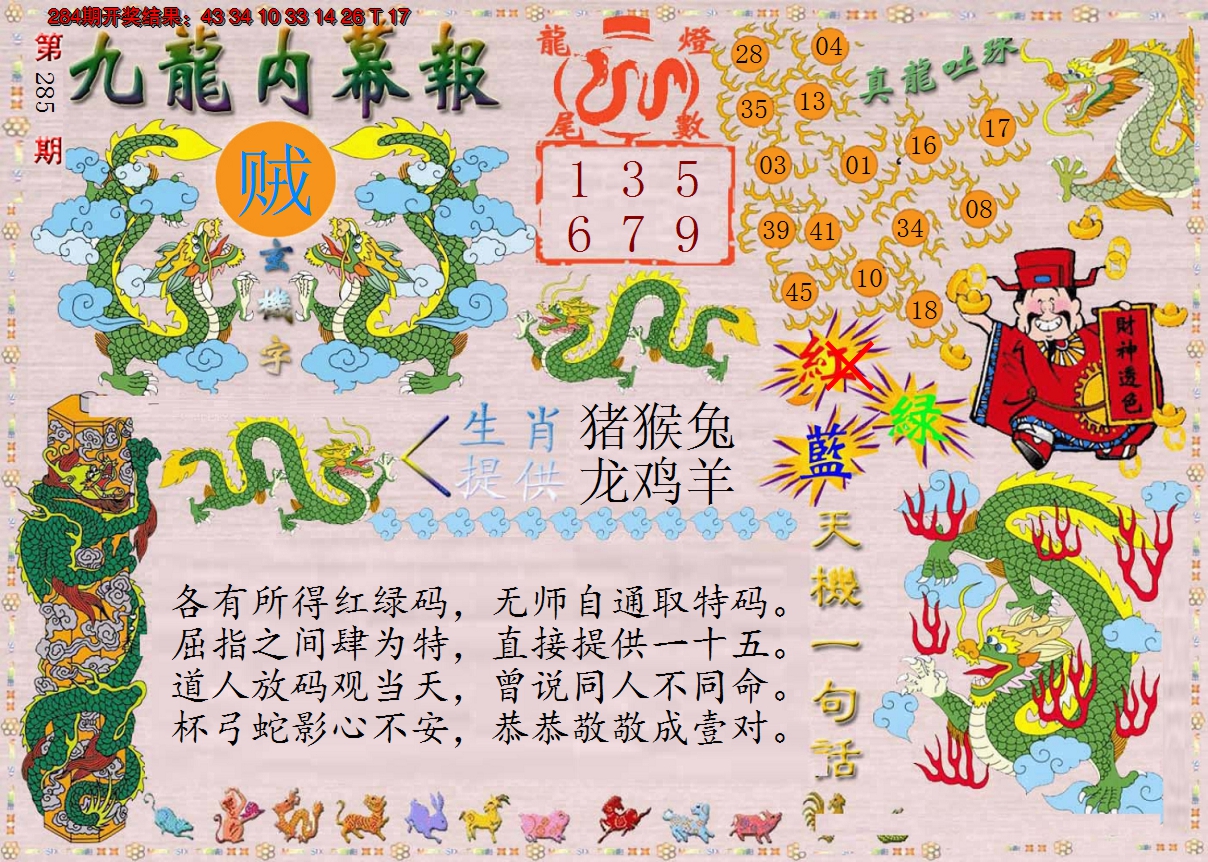 284期开奖结果：43 34 10 33 14 26 T 17
第
285
期
九龍内幕報
贼
玄
機
字
龍
燈
尾
數
1 3 5
6 7 9
真龍吐珠
28
04
35
13
16
17
03
01
08
39
41
34
45
10
18
紅
绿
藍
財
神
透
色
生肖
提供
猪猴兔
龙鸡羊
天
機
一
句
话
各有所得红绿码，无师自通取特码。
屈指之间肆为特，直接提供一十五。
道人放码观当天，曾说同人不同命。
杯弓蛇影心不安，恭恭敬敬成壹对。